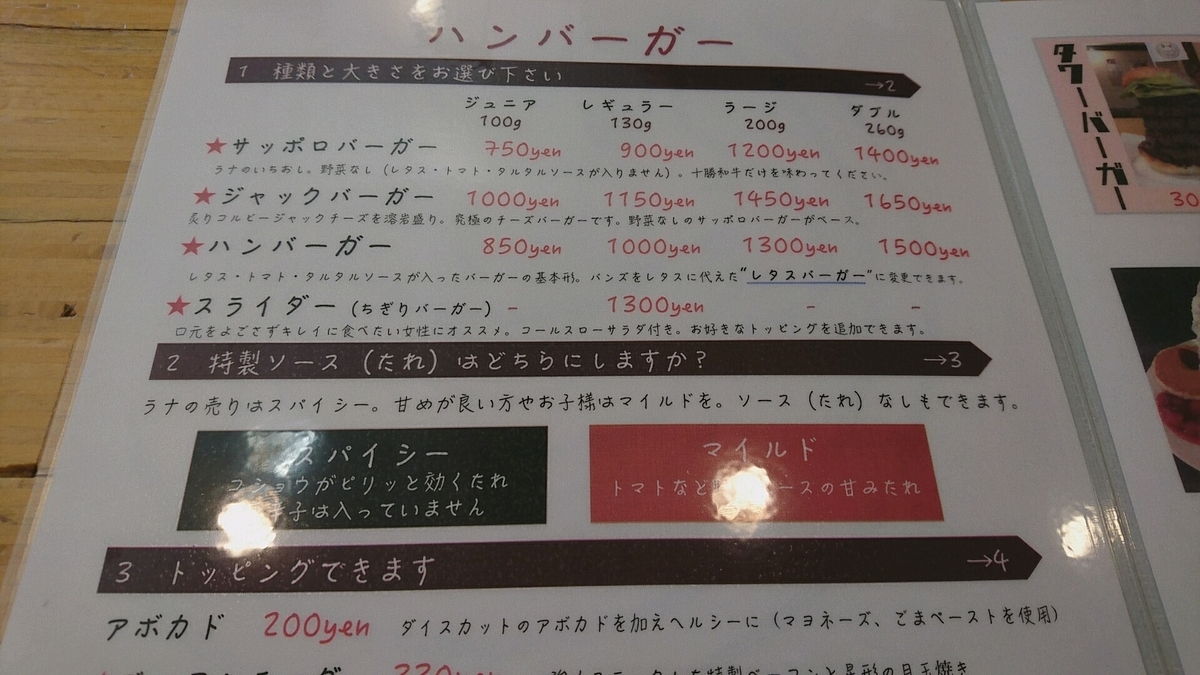 ハンバーガー
1 種類と大きさをお選び下さい →2
ジュニア レギュラー ラージ ダブル
100g 130g 200g 260g
★サッポロバーガー 750yen 900yen 1200yen 1400yen
ラナのいちおし。野菜なし（レタス・トマト・タルタルソースが入りません）。十勝和牛だけを味わってください。
★ジャックバーガー 1000yen 1150yen 1450yen 1650yen
炙りコルビージャックチーズを溶岩盛り。究極のチーズバーガーです。野菜なしのサッポロバーガーがベース。
★ハンバーガー 850yen 1000yen 1300yen 1500yen
レタス・トマト・タルタルソースが入ったバーガーの基本形。バンズをレタスに代えた"レタスバーガー"に変更できます。
★スライダー（ちぎりバーガー） - 1300yen - -
口元をよごさずキレイに食べたい女性にオススメ。コールスローサラダ付き。お好きなトッピングを追加できます。
2 特製ソース（たれ）はどちらにしますか? →3
ラナの売りはスパイシー。甘めが良い方やお子様はマイルドを。ソース（たれ）なしもできます。
スパイシー
コショウがピリッと効くたれ
子は入っていません
マイルド
トマトなど ースの甘みたれ
3 トッピングできます →4
アボカド 200yen ダイスカットのアボカドを加えヘルシーに（マヨネーズ、ごまペーストを使用）
タワーバーガー
30